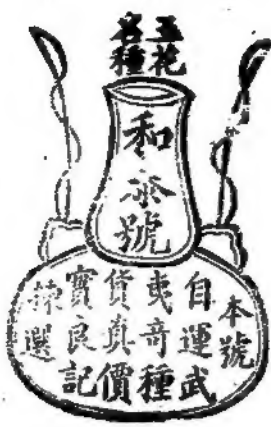 五花
名種
和泰號
本號
自運武
夷奇種
貨真價
實良記
揀選